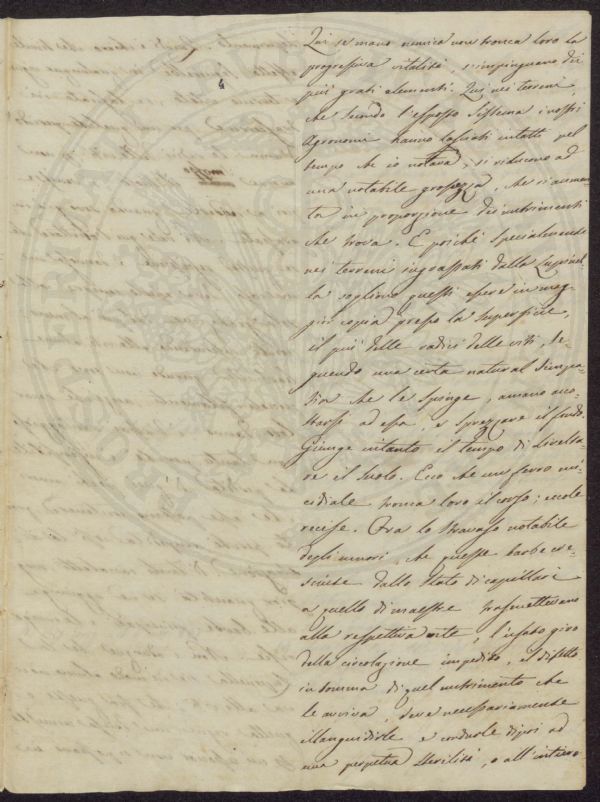 4
Qui se mano nemica non tronca loro la
progressiva vitalità, s'impinguano dei
più grati alementi. Qui nei terreni,
che secondo l'esposto Sistema i nostri
Agronomi hanno lasciati intatti pel
tempo che io notava, si riducono ad
una notabile grossezza, che si aumen=
ta in proporzione dei nutrimenti
che trova. E poiché specialmente
nei terreni ingrassati dalla Lupinel=
la sogliono questi essere in mag=
gior copia presso la superficie,
il più delle radici delle viti, se=
guendo una certa natural Simpa=
tia che le spinge, amano acco=
starsi ad essa, e sprezzare il fondo.
Giunge intanto il tempo di Livella
re il Suolo. Ecco che un ferro mi=
cidiale tronca loro il corso; eccole
recise. Ora lo stravaso notabile
degli umori, che queste barbe cre=
sciute dallo stato di capillari
a quello di maestre trasmettevano
alla respettiva vite, l'usato giro
della circolazione impedito, il difetto
in somma di quel nutrimento che
le avviva, deve necessariamente
illanguidirle e condurle di poi ad
una perpetua sterilità, o all'intiero